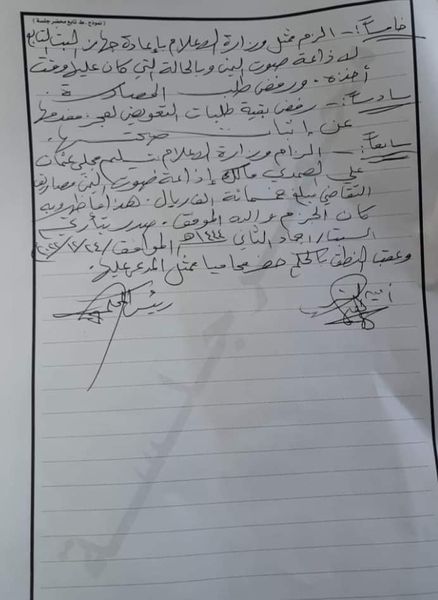 (نموذج - ط تابع محضر جلسة)
خامساً:- الزم ممثل وزارة الاعلام بإعادة جهاز البث التابع
لاذاعة صوت اليمن وبالحالة التي كان عليها وقت
أخذه. ورفض طلب المصادرة.
سادساً:- رفض بقية طلبات التعويض لعجز مقدمها
عن إثبات صحتها.
سابعاً:- الزام وزارة الاعلام بتسليم مجلي
علي الصمدي مالك إذاعة صوت اليمن مصاريف
التقاضي مبلغ خمسمائة الف ريال. هذا ما
كان الحزم به والله الموفق. صدر بتأريخ
السبت / جماد الثاني ١٤٤٤هـ الموافق ٢٤/١٢/٢٠٢٢
وعقب النطق بالحكم حضر محاميا ممثل المدعى عليها.
أمين السر رئيس المحكمة
محضر جلسة